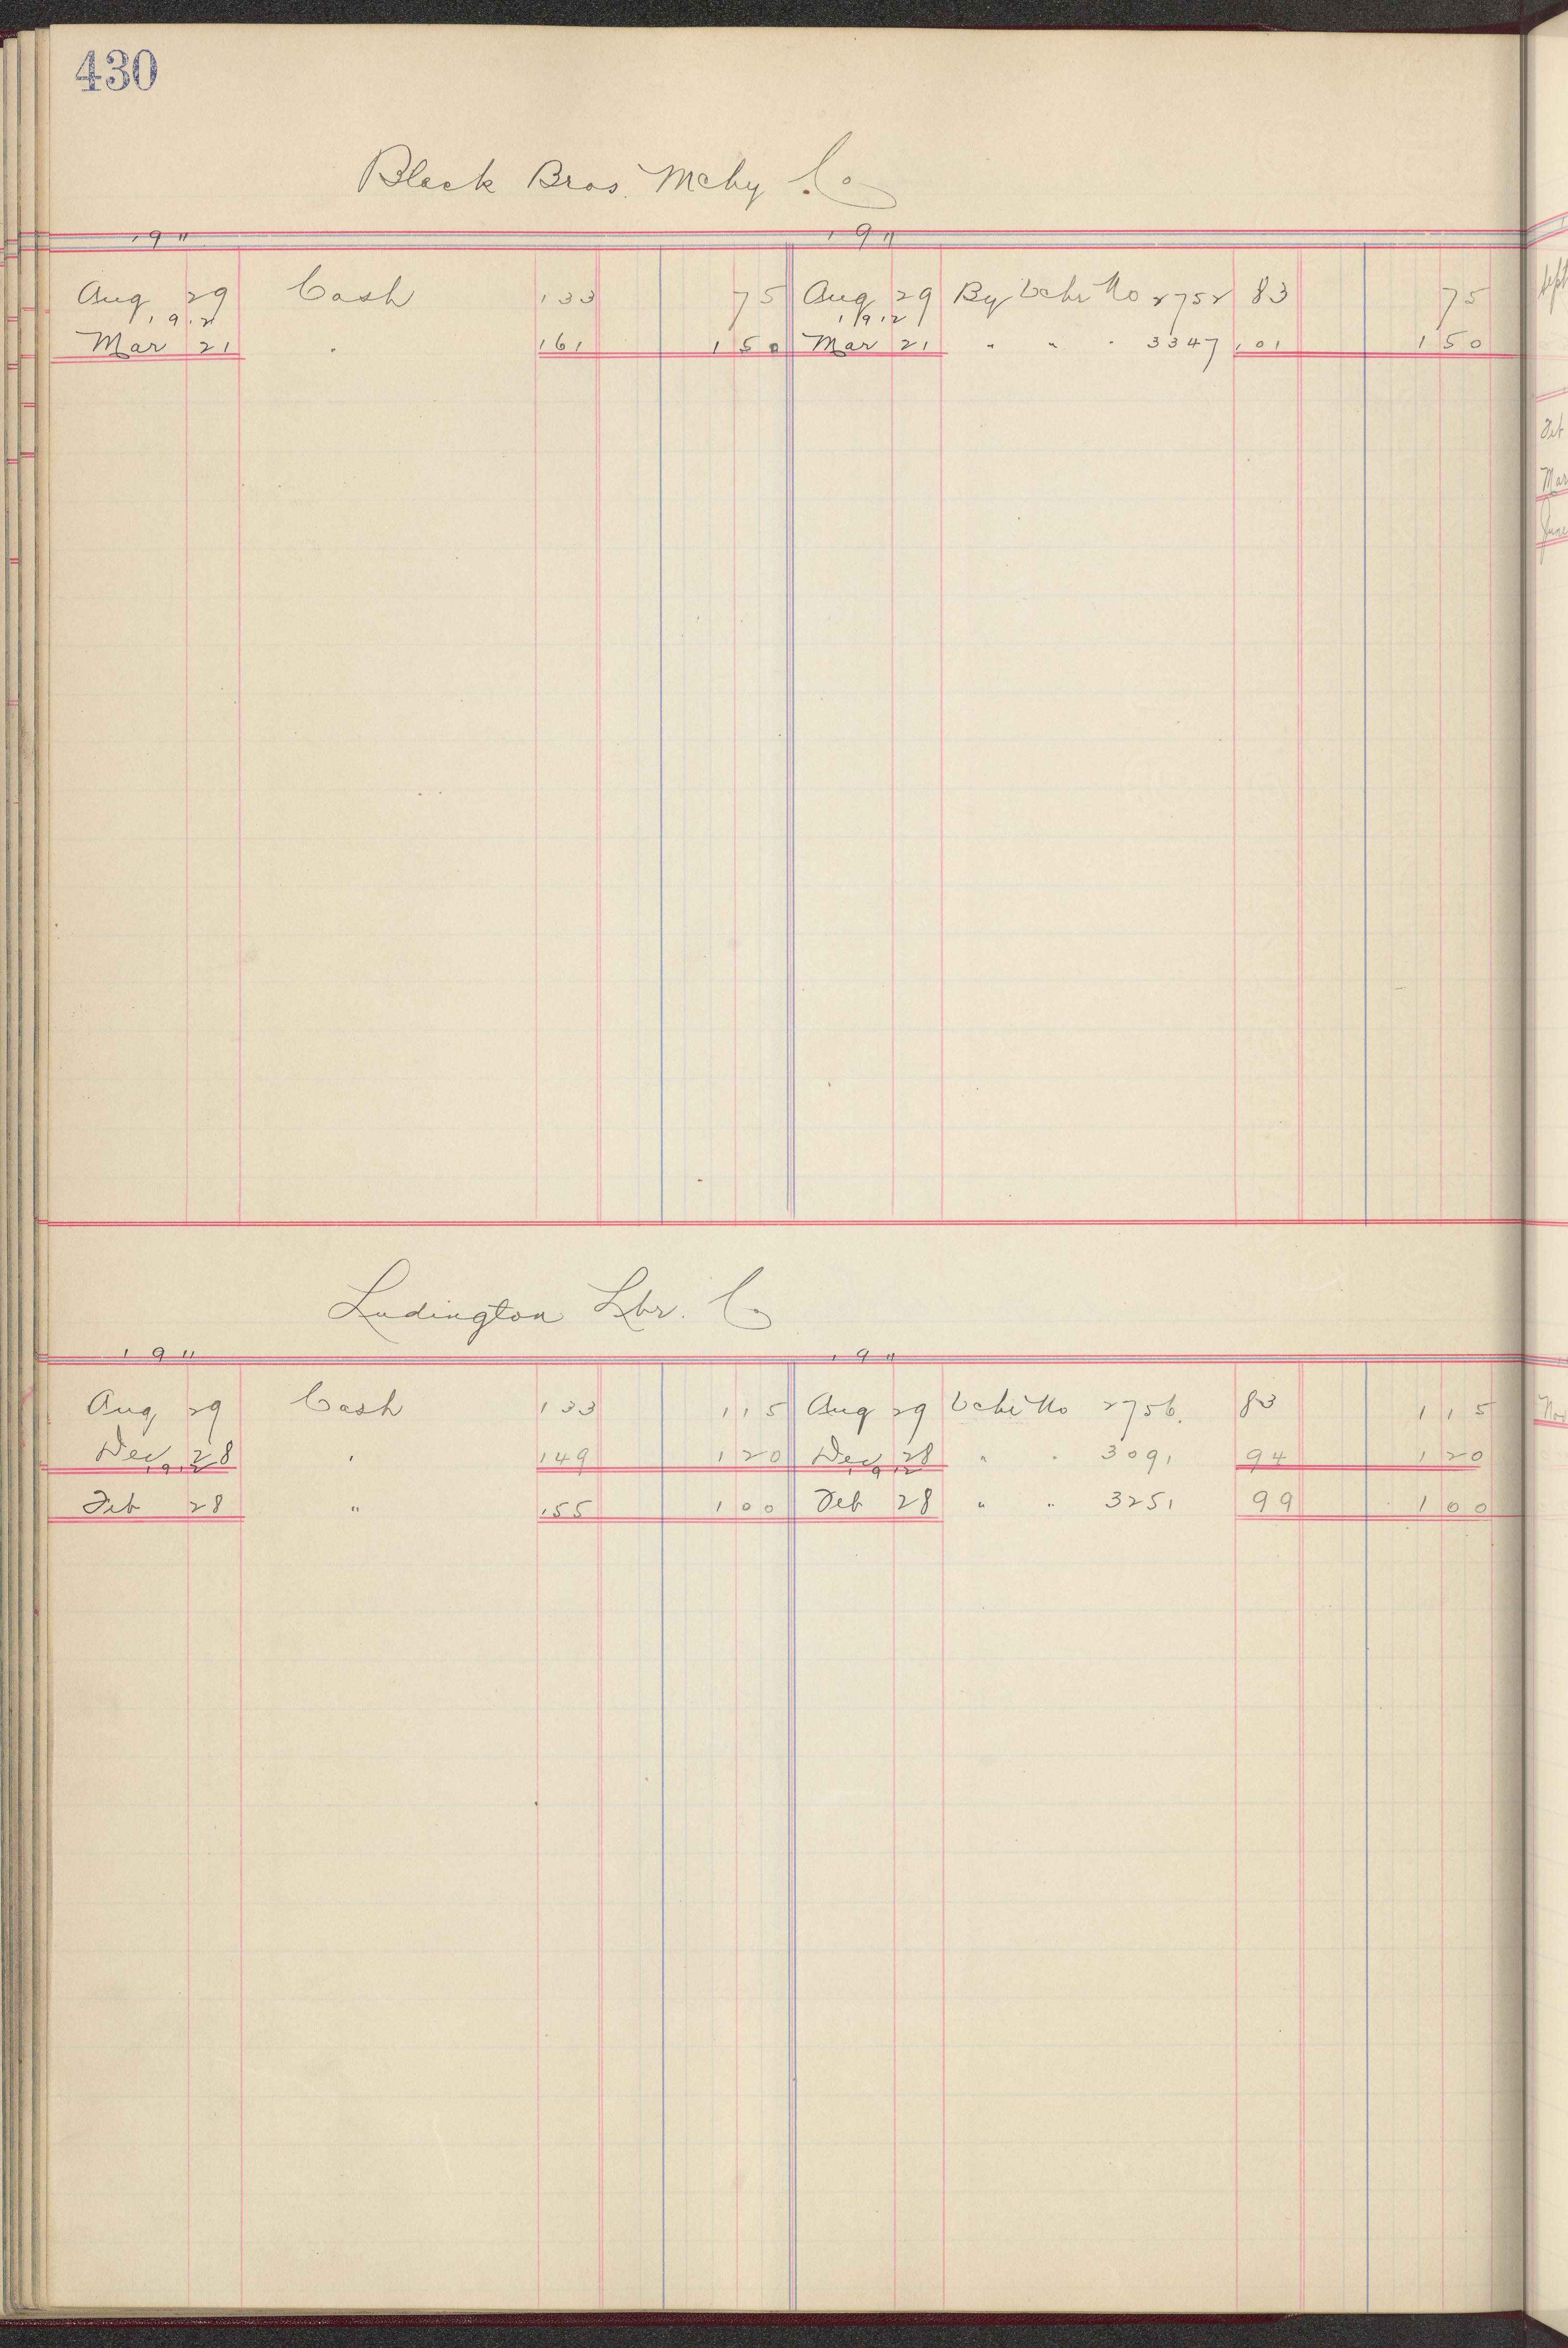 430
Black Bros. Mchy Co
1911 1911
Aug 29 Cash 133 75 Aug 29 By Vchr No 2752 83 75
1912 1912
Mar 21 " 161 150 Mar 21 " " " 3347 101 150
Ludington Lbr. Co
1911 1911
Aug 29 Cash 133 115 Aug 29 Vchr No 2756. 83 115
Dec 28 " 149 120 Dec 28 " " 3091 94 120
1912 1912
Feb 28 " 155 100 Feb 28 " " 3251 99 100
Sept
Feb
Mar
June
Nov